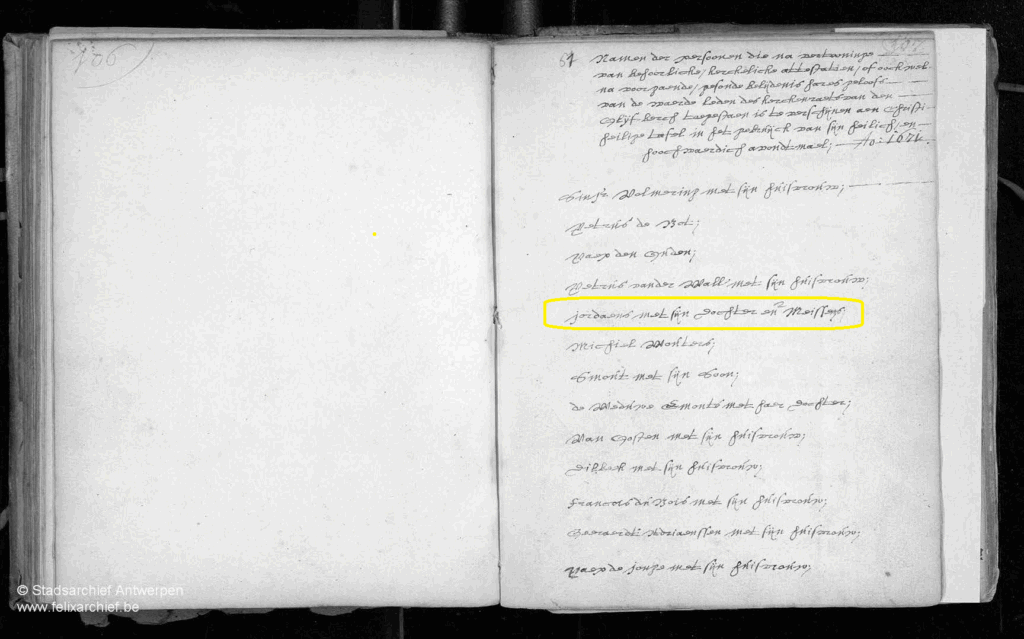 106
107
61 Namen der persoonen die na vertooninge
van behoorlicke, kerckelicke attestatien, of oock wel
na voorgaende, gesonde belijdenis hares geloofs
van de waerde Leden des kerckenraets van den
Olijf berch toegestaen is te verschijnen aen Christi
heilige tafel in het gebruijck van sijn heilich, en
hoochwaerdich avondtmael; Ao: 1671.
Wolmering met sijn huisvrouw;
Petrus de Bot;
den Enden;
Petrus vander Wall met sijn huisvrouw;
jordaens met sijn dochter en Meissens;
Michiel Wouters;
Simont met sijn Soon;
de Weduwe Simonts met haer dochter;
Van Oosten met sijn huisvrouw;
Dibbek met sijn huisvrouw;
Francois du Bois met sijn huisvrouw;
Geeraerdt Adriaenssen met sijn huisvrouw;
de jonge met sijn huisvrouw;
© Stadsarchief Antwerpen
www.felixarchief.be